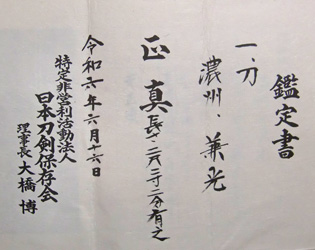 鑑定書
一、刀
濃州、兼光
正真 長サ二尺三寸二分有之
令和六年六月十六日
特定非営利活動法人
日本刀剣保存会
理事長 大橋 博